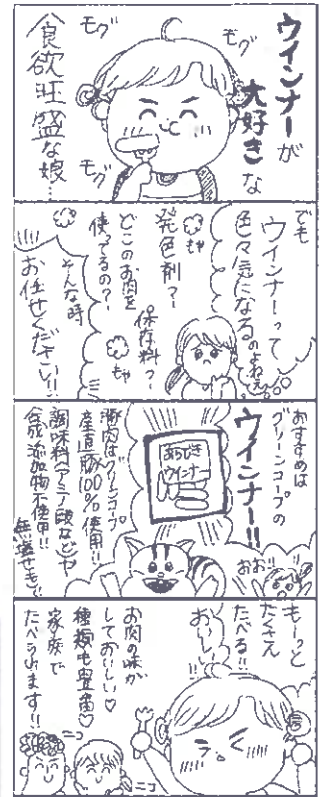 ウインナーが
大好きな
モグ
モグ
モグ
食欲旺盛な娘…
でも
ウインナーって
色々気になるのよねぇ…
もや
発色剤?
どこのお肉を
使ってるの?
保存料?
もや
そんな時
お任せください!!
おすすめは
グリーンコープの
ウインナー!!
あらびき
ウインナー
おお!!
豚肉はグリーンコープ
産直豚100%使用!!
調味料(アミノ酸など)や
合成添加物不使用!!
無塩せきも!!
もーっと
たくさん
たべる!!
おいしい!!
お肉の味が
しておいしい♡
種類も豊富♡
家族で
たべられます!!
ニコ
ニコ